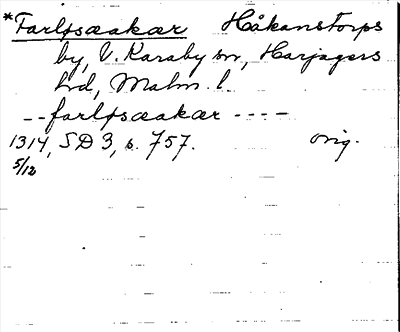 *Farlfsæakær Håkanstorps
by, V. Karaby sn, Harjagers
hd, Malm. l.
-- farlfsæakær ----
1314, SD 3, s. 757. orig.
5/12